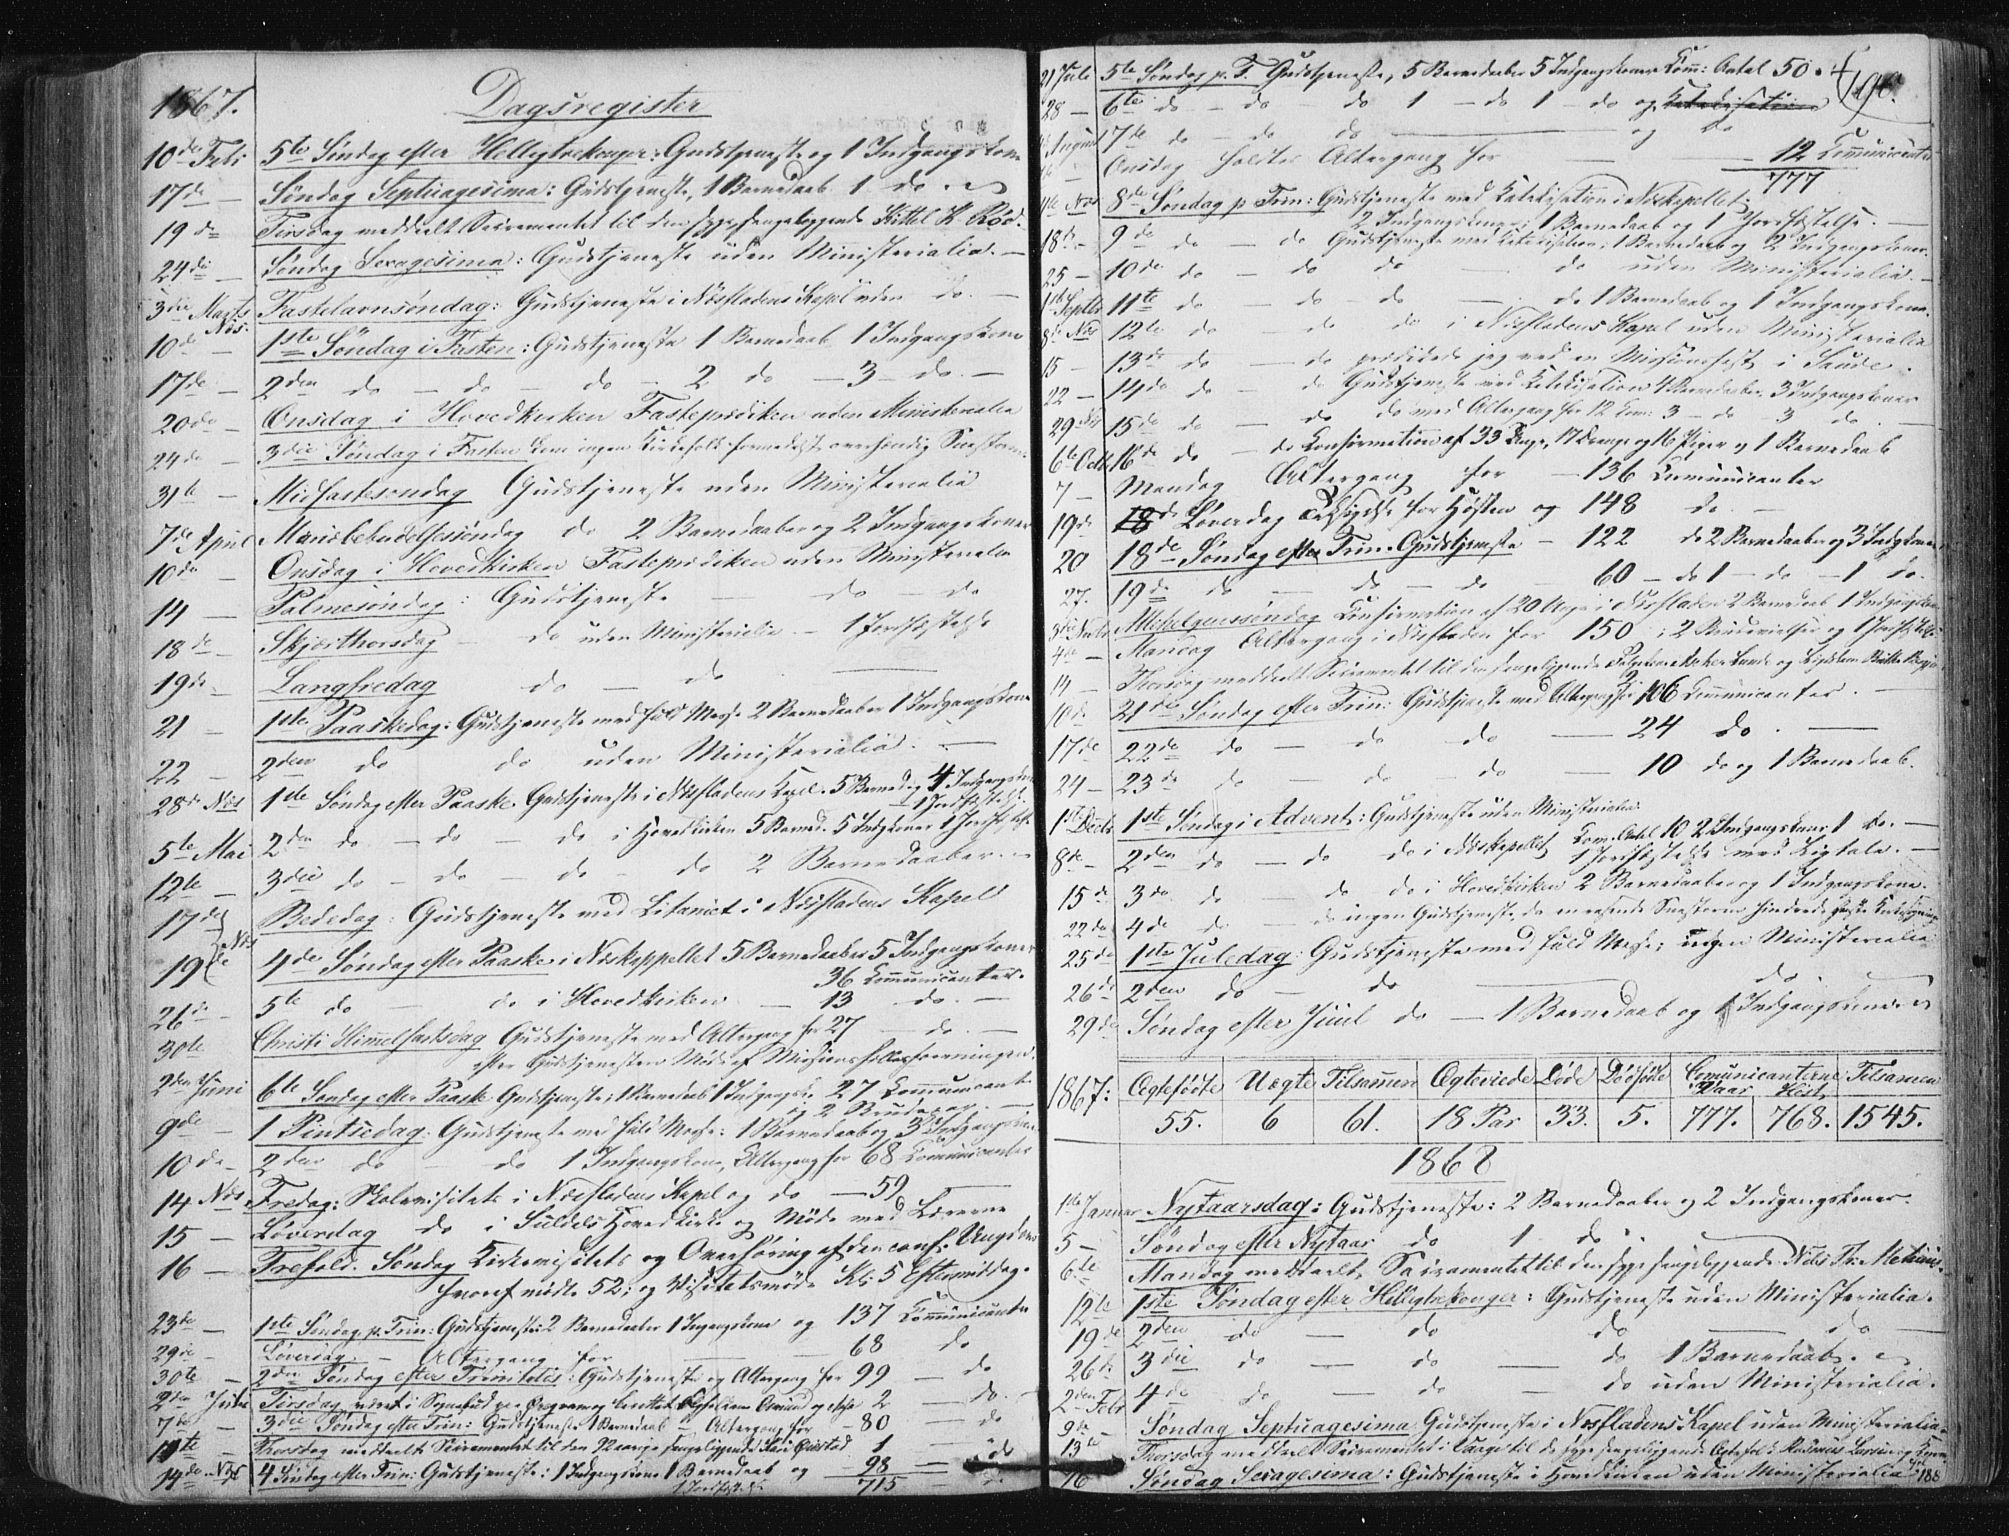 1867. Dagsregister
10de Febr 5te Søndag efter Helligtrekonger: Gudstjeneste og 1 Indgangskone
17de — Søndag Septuagesima: Gudstjeneste, 1 Barnedaab 1 do.
19de Tirsdag meddeelt Sacramentet til den syge sengeliggende Kittel K. Røe.
24de — Søndag Sexagesima: Gudstjeneste uden Ministerialia. —
3die Marts Næs. Fastelavnsøndag: Gudstjeneste i Næsfladens Kapel uden do. —
10de — 1ste Søndag i Fasten: Gudstjeneste 1 Barnedaab 1 Indgangskone
17de — 2den do — do — do — 2 do — 3 — do. —
20de — Onsdag i Hovedkirken Fasteprædiken uden Ministerialia
24de 3die Søndag i Fasten kom ingen Kirkefolk formedelst overhændig Snestorm.
31te — Midfastesøndag Gudstjeneste uden Ministerialia
7de April Mariæbebudelsessøndag do 2 Barnedaaber og 2 Indgangskoner
10de — Onsdag i Hovedkirken Fasteprædiken uden Ministerialia
14 — Palmesøndag: Gudstjeneste — do — do
18de Skjærthorsdag — do uden Ministerialia — 1 Jordfæstelse
19de — Langfredag do — do —
21 — 1ste Paaskedag: Gudstjeneste med fuld Messe 2 Barnedaaber 1 Indgangskone
22 — 2den do do uden Ministerialia. —
28de Næs 1ste Søndag efter Paaske Gudstjeneste i Næsfladens Kapel. 5 Barned. 4 Indgangskoner
1 Jordfæstelse.
5te Mai 2den do — do — do i Hovedkirken 5 Barned. 5 Indgkoner 1 Jordfæstelse
12te — 3die do — do — do — do 2 Barnedaaber. —
17de Bededag: Gudstjeneste med Litaniet i Næsfladens Kapel
19de Næs 4de Søndag efter Paaske i Næskappellet 5 Barnedaaber 5 Indgangskoner
36 Communicanter.
26de — 5te do — do i Hovedkirken — 13 do. —
30te Christi Himmelfartsdag Gudstjeneste med Altergang for 27 — do. —
efter Gudstjenesten Møde af Missionsfællesforeningen.
2den Juni 6te Søndag efter Paaske Gudstjeneste: 1 Barnedaab 1 Indgangsk. 27 Communicant
og 2 Brudepar. —
9de — 1 Pintsedag: Gudstjeneste med fuld Messe: 1 Barnedaab og 3 Indgangskoner
10de — 2den do — do 1 Indgangskone, Altergang for 68 Communicanter
14 Næs Fredag: Skolevisitats i Næsfladens Kapel og do — 59 —
15 — Løverdag do i Suldels Hovedkirke og Møde med Lærerne
16 — Trefold. Søndag Kirkevisitats og Overhøring af den conf. Ungdom
hvoraf mødte 52; og Visitatsmøde Kl. 5 Eftermiddag.
23de — 1ste Søndag p. Trin: Gudstjeneste: 2 Barnedaaber 1 Ingangskone og 137 Communicanter
29de — Løverdag — Altergang for — 68 do
30te — 2den Søndag efter Trinitatis: Gudstjeneste og Altergang for 99 — do
2den Juli Tirsdag været i Sognebud 2 do. —
7de — 3die Søndag efter Trin: Gudstjeneste 1 Barnedaab Altergang for — 80 — do
11te — Thorsdag meddeelt Sacramentet til den 92aarige sengeliggende 1 — do
14de Næs 4 Søndag efter Trin: Gudstjeneste: 1 Indgangskone 1 Barnedaab og — 98 — do
1 Jordfæstelse 715
21 Juli 5te Søndag p. T. Gudstjeneste, 5 Barnedaaber 5 Indgangskoner Com: Antal 50.
190.
28 — 6te do — do do 1 — do 1 — do og Katekisation
August 7de do — do do — og do
Onsdag holdtes Altergang for — 12 Communicanter
777
11te Næs 8de Søndag p Trin: Gudstjeneste med Katekisation i Næskapellet.
2 Indgangskoner, 1 Barnedaab og 1 Jordfæstelse. —
18de — 9de do — do Gudstjeneste med Katekisation, 1 Barnedaab og 2 Indgangskoner.
25 — 10de do — do do — do uden Ministerialia —
1ste Septbr 11te do — do — do — do 1 Barnedaab og 1 Indgangskone.
8de Næs 12te do — do do i Næsfladens Kapel uden Ministerialia
15 — 13de do — do prædikede jeg ved en Missionsfest i Saude.
22 — 14de do — do Gudstjeneste med Katekisation 4 Barnedaaber. 3 Indgangskoner
29de 15de do — do do med Altergang for 12 Com: 3 — do 3 do
6te Octb. 16de do — do Confirmation af 33 Unge, 17 Drenge og 16 Piger og 1 Barnedaab
7 — Mandag Altergang for — 136 Communicanter
19de Løverdag Takkefest for Høsten og 148 do. —
20 18de Søndag efter Trin. Gudstjeneste — 122 do 2 Barnedaaber og 3 Indgkoner
27. 19de do — do — do — 60 — do 1 — do — 1 do.
3die Novbr Allehelgenssøndag Confirmation af 20 Unge i Næsfladen 2 Barnedaab 1 Indgangskone
4de — Mandag Altergang i Næsfladen for 150; 2 Brudevielser og 1 Jordfæstelse
14 — Thorsdag meddeelt Sacramentet til den sengeliggende
10de 21de Søndag efter Trin: Gudstjeneste med Altergang for 106 Communicanter. —
17de 22de do — do do — 24 do. —
24 — 23de do — do — do — 10 do og 1 Barnedaab.
1ste Decbr 1ste Søndag i Advent: Gudstjeneste uden Ministerialia.
8de — 2den do — do do i Næskapellet Com. Antal 10 2 Indgangskoner 1 do. —
1 Jordfæstelse med Ligtale. —
15de 3de do — do do i Hovedkirken 2 Barnedaaber og 1 Indgangskone.
22de 4de do — do ingen Gudstjeneste, da en rasende Snestorm hindrede Kirkesøgning
25de 1ste Juledag: Gudstjeneste med fuld Messe: ingen Ministerialia
26de 2den do — do — do
29de Søndag efter Juul do — 1 Barnedaab og 1 Indgangskone
1867: Ægtefødte Uægte Tilsammen Ægteviede Døde Dødfødte Comunicanterne Vaar Høst Tilsammen
55. 6 61. 18 Par 33. 5. 777. 768. 1545.
1868
1ste Januar Nytaarsdag: Gudstjeneste: 2 Barnedaaber og 2 Indgangskoner.
5 — Søndag efter Nytaar do 1 do.
6te Mandag meddeelt Sacramentet til den syge sengeliggende
12te 1ste Søndag efter Helligtrekonger: Gudstjeneste uden Ministerialia.
19de 2den do — do do — do —
26de 3die do — do — do 1 Barnedaab.
2den Febr 4de do — do — do uden Ministerialia.
9de — Søndag Septuagesima Gudstjeneste i Næsfladens Kapel uden Ministerialia
13de Thorsdag meddeelt Sacramentet i Vaage til de syge sengeliggende Ægtefolk Rasmus Larsen og Kone
16 Søndag Sexagesima: Gudstjeneste i Hovedkirken uden Ministerialia
188